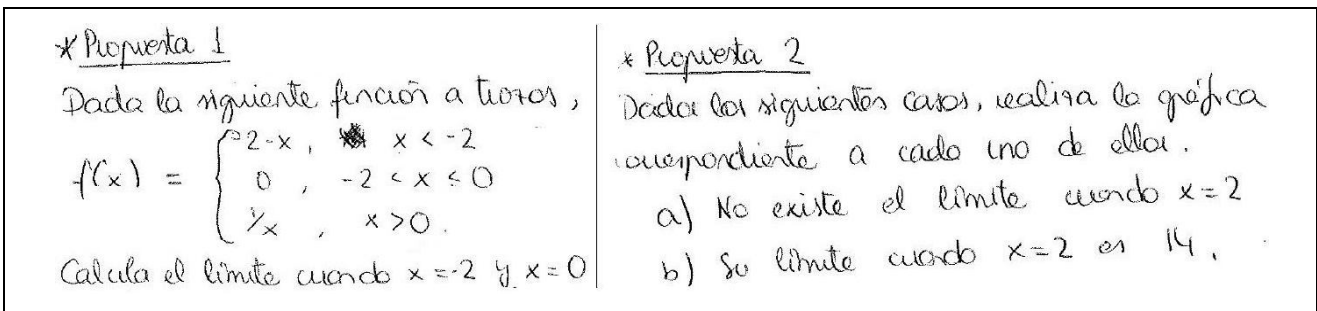 * Propuesta 1
Dada la siguiente función a trozos,
f(x) = { -2-x, x < -2
0, -2 < x ≤ 0
1/x, x > 0.
Calcula el límite cuando x=-2 y x=0
* Propuesta 2
Dados los siguientes casos, realiza la gráfica
correspondiente a cada uno de ellos.
a) No existe el límite cuando x=2
b) Su límite cuando x=2 es 14.